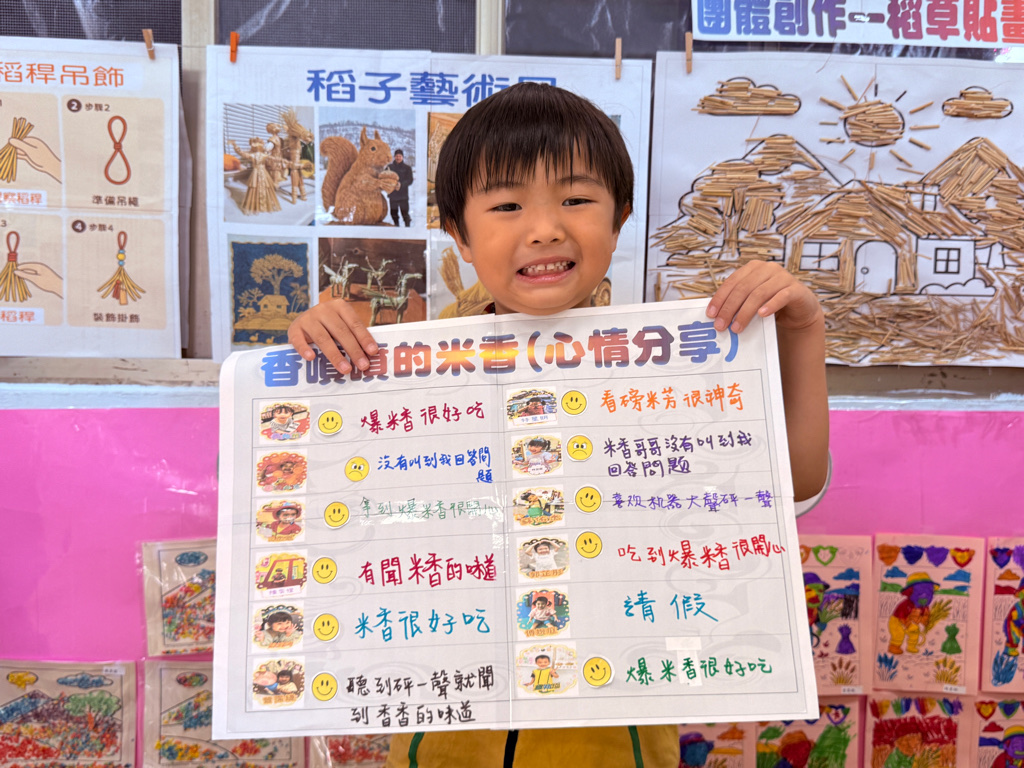 團體創作--稻草貼畫
稻稈吊飾
2 步驟2
稻稈
準備吊繩
3
4 步驟4
稻稈
裝飾掛飾
稻子藝術
香噴噴的米香(心情分享)
爆米香很好吃
看磅米芳很神奇
沒有叫到我回答問
題
米香哥哥沒有叫到我
回答問題
拿到爆米香很開心
喜欢机器大聲砰一聲
有聞米香的味道
吃到爆米香很開心
米香很好吃
請假
聽到砰一聲就聞
到香香的味道
爆米香很好吃